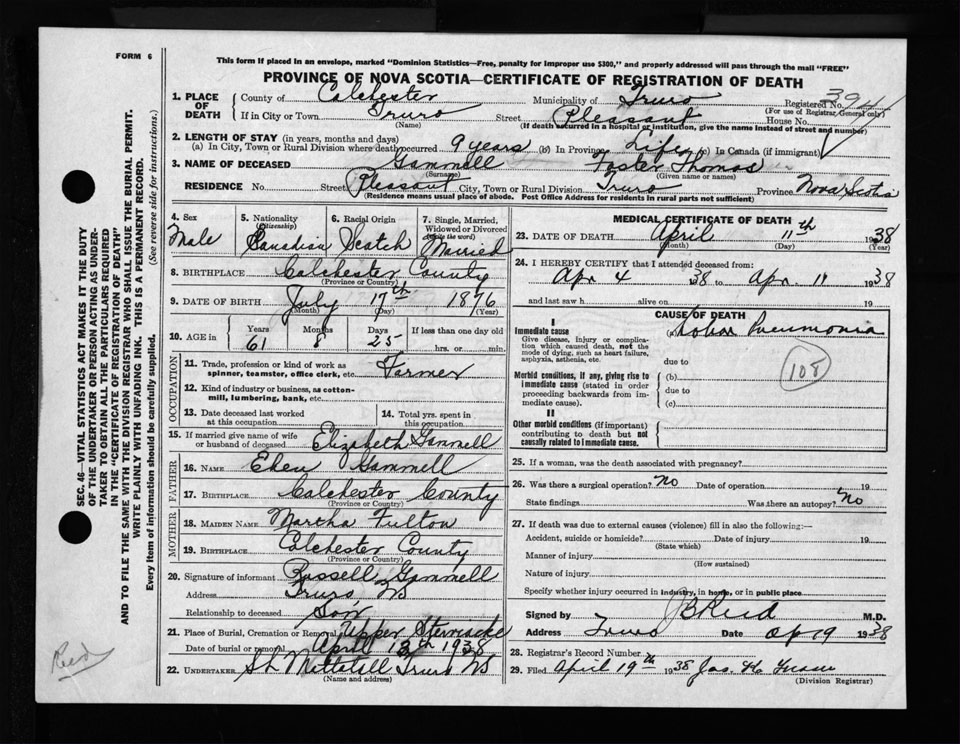 FORM 6
This form if placed in an envelope, marked "Dominion Statistics—Free, penalty for improper use $300," and properly addressed will pass through the mail "FREE"
PROVINCE OF NOVA SCOTIA—CERTIFICATE OF REGISTRATION OF DEATH
1. PLACE OF DEATH
County of Colchester Municipality of Truro Registered No. 394
(For use of Registrar General only)
If in City or Town Truro Street Pleasant House No.
(Name) (If death occurred in a hospital or institution, give the name instead of street and number)
2. LENGTH OF STAY (in years, months and days)
(a) In City, Town or Rural Division where death occurred 9 years (b) In Province Life (c) In Canada (if immigrant)
3. NAME OF DECEASED Gammell Foster Thomas
(Surname) (Given name or names)
RESIDENCE No. Street Pleasant City, Town or Rural Division Truro Province Nova Scotia
(Residence means usual place of abode. Post Office Address for residents in rural parts not sufficient)
4. Sex
Male
5. Nationality (Citizenship)
Canadian
6. Racial Origin
Scotch
7. Single, Married, Widowed or Divorced (write the word)
Married
8. BIRTHPLACE Colchester County
(Province or County)
9. DATE OF BIRTH July 17th 1876
(Month) (Day) (Year)
10. AGE in Years Months Days If less than one day old
61 8 25 hrs. or min.
OCCUPATION
11. Trade, profession or kind of work as spinner, teamster, office clerk, etc. Farmer
12. Kind of industry or business, as cotton-mill, lumbering, bank, etc.
13. Date deceased last worked at this occupation
14. Total yrs. spent in this occupation
15. If married give name of wife or husband of deceased Elizabeth Gammell
FATHER
16. NAME Eben Gammell
17. BIRTHPLACE Colchester County
(Province or County)
MOTHER
18. MAIDEN NAME Martha Fulton
19. BIRTHPLACE Colchester County
(Province or County)
20. Signature of informant Russell Gammell
Address Truro NS
Relationship to deceased Son
21. Place of Burial, Cremation or Removal Upper Stewiacke
Date of burial or removal April 13th 1938
22. UNDERTAKER Truro NS
(Name and address)
MEDICAL CERTIFICATE OF DEATH
23. DATE OF DEATH April 11th 1938
(Month) (Day) (Year)
24. I HEREBY CERTIFY that I attended deceased from:
Apr 4 38 to Apr. 11 1938
and last saw h alive on 19
CAUSE OF DEATH
I
Immediate cause (a) Lobar Pneumonia
Give disease, injury or complication which caused death, not the mode of dying, such as heart failure, asphyxia, asthenia, etc.
due to
108
Morbid conditions, if any, giving rise to immediate cause (stated in order proceeding backwards from immediate cause).
(b)
due to
(c)
II
Other morbid conditions (if important) contributing to death but not causally related to immediate cause.
25. If a woman, was the death associated with pregnancy?
26. Was there a surgical operation? No Date of operation 19
State findings Was there an autopsy? No
27. If death was due to external causes (violence) fill in also the following:—
Accident, suicide or homicide? Date of injury 19
(State which)
Manner of injury
(How sustained)
Nature of injury
Specify whether injury occurred in industry, in home, or in public place
Signed by J B Reid M.D.
Address Truro Date Ap 19 1938
28. Registrar's Record Number
29. Filed April 19th 1938
(Division Registrar)
SEC. 46—VITAL STATISTICS ACT MAKES IT THE DUTY
OF THE UNDERTAKER OR PERSON ACTING AS UNDER-
TAKER TO OBTAIN ALL THE PARTICULARS REQUIRED
IN THE "CERTIFICATE OF REGISTRATION OF DEATH"
AND TO FILE THE SAME WITH THE DIVISION REGISTRAR WHO SHALL ISSUE THE BURIAL PERMIT.
WRITE PLAINLY WITH UNFADING INK. THIS IS A PERMANENT RECORD.
Every item of information should be carefully supplied. (See reverse side for instructions.)
Reid